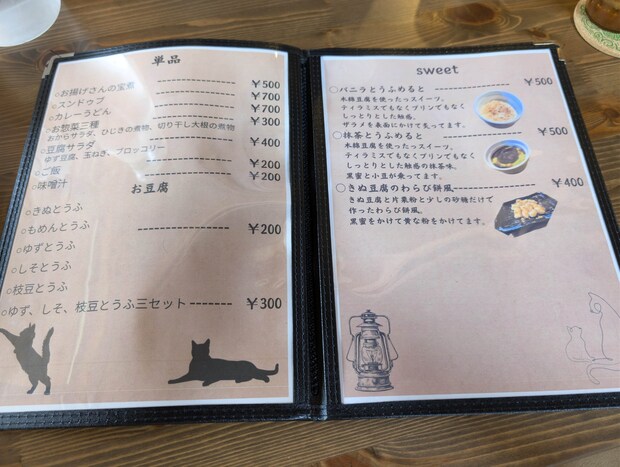 単品
○お揚げさんの宝煮 ----------- ￥500
○スンドゥブ ----------- ￥700
○カレーうどん ----------- ￥700
○お惣菜三種 ----------- ￥300
おからサラダ、ひじきの煮物、切り干し大根の煮物
○豆腐サラダ ----------- ￥400
ゆず豆腐、玉ねぎ、ブロッコリー
○ご飯 ----------- ￥200
○味噌汁 ----------- ￥200
お豆腐
○きぬとうふ
○もめんとうふ ------- ￥200
○ゆずとうふ
○しそとうふ
○枝豆とうふ
○ゆず、しそ、枝豆とうふ三セット ------- ￥300
sweet
○バニラとうふめると ----------- ￥500
木綿豆腐を使ったっスイーツ。
ティラミスでもなくプリンでもなく
しっとりとした触感。
ザラメを表面にかけて炙ってます。
○抹茶とうふめると ----------- ￥500
木綿豆腐を使ったっスイーツ。
ティラミスでもなくプリンでもなく
しっとりとした触感の抹茶味。
黒蜜と小豆が乗ってます。
○きぬ豆腐のわらび餅風 ------- ￥400
きぬ豆腐と片栗粉と少しの砂糖だけで
作ったわらび餅風。
黒蜜をかけて黄な粉をかけてます。